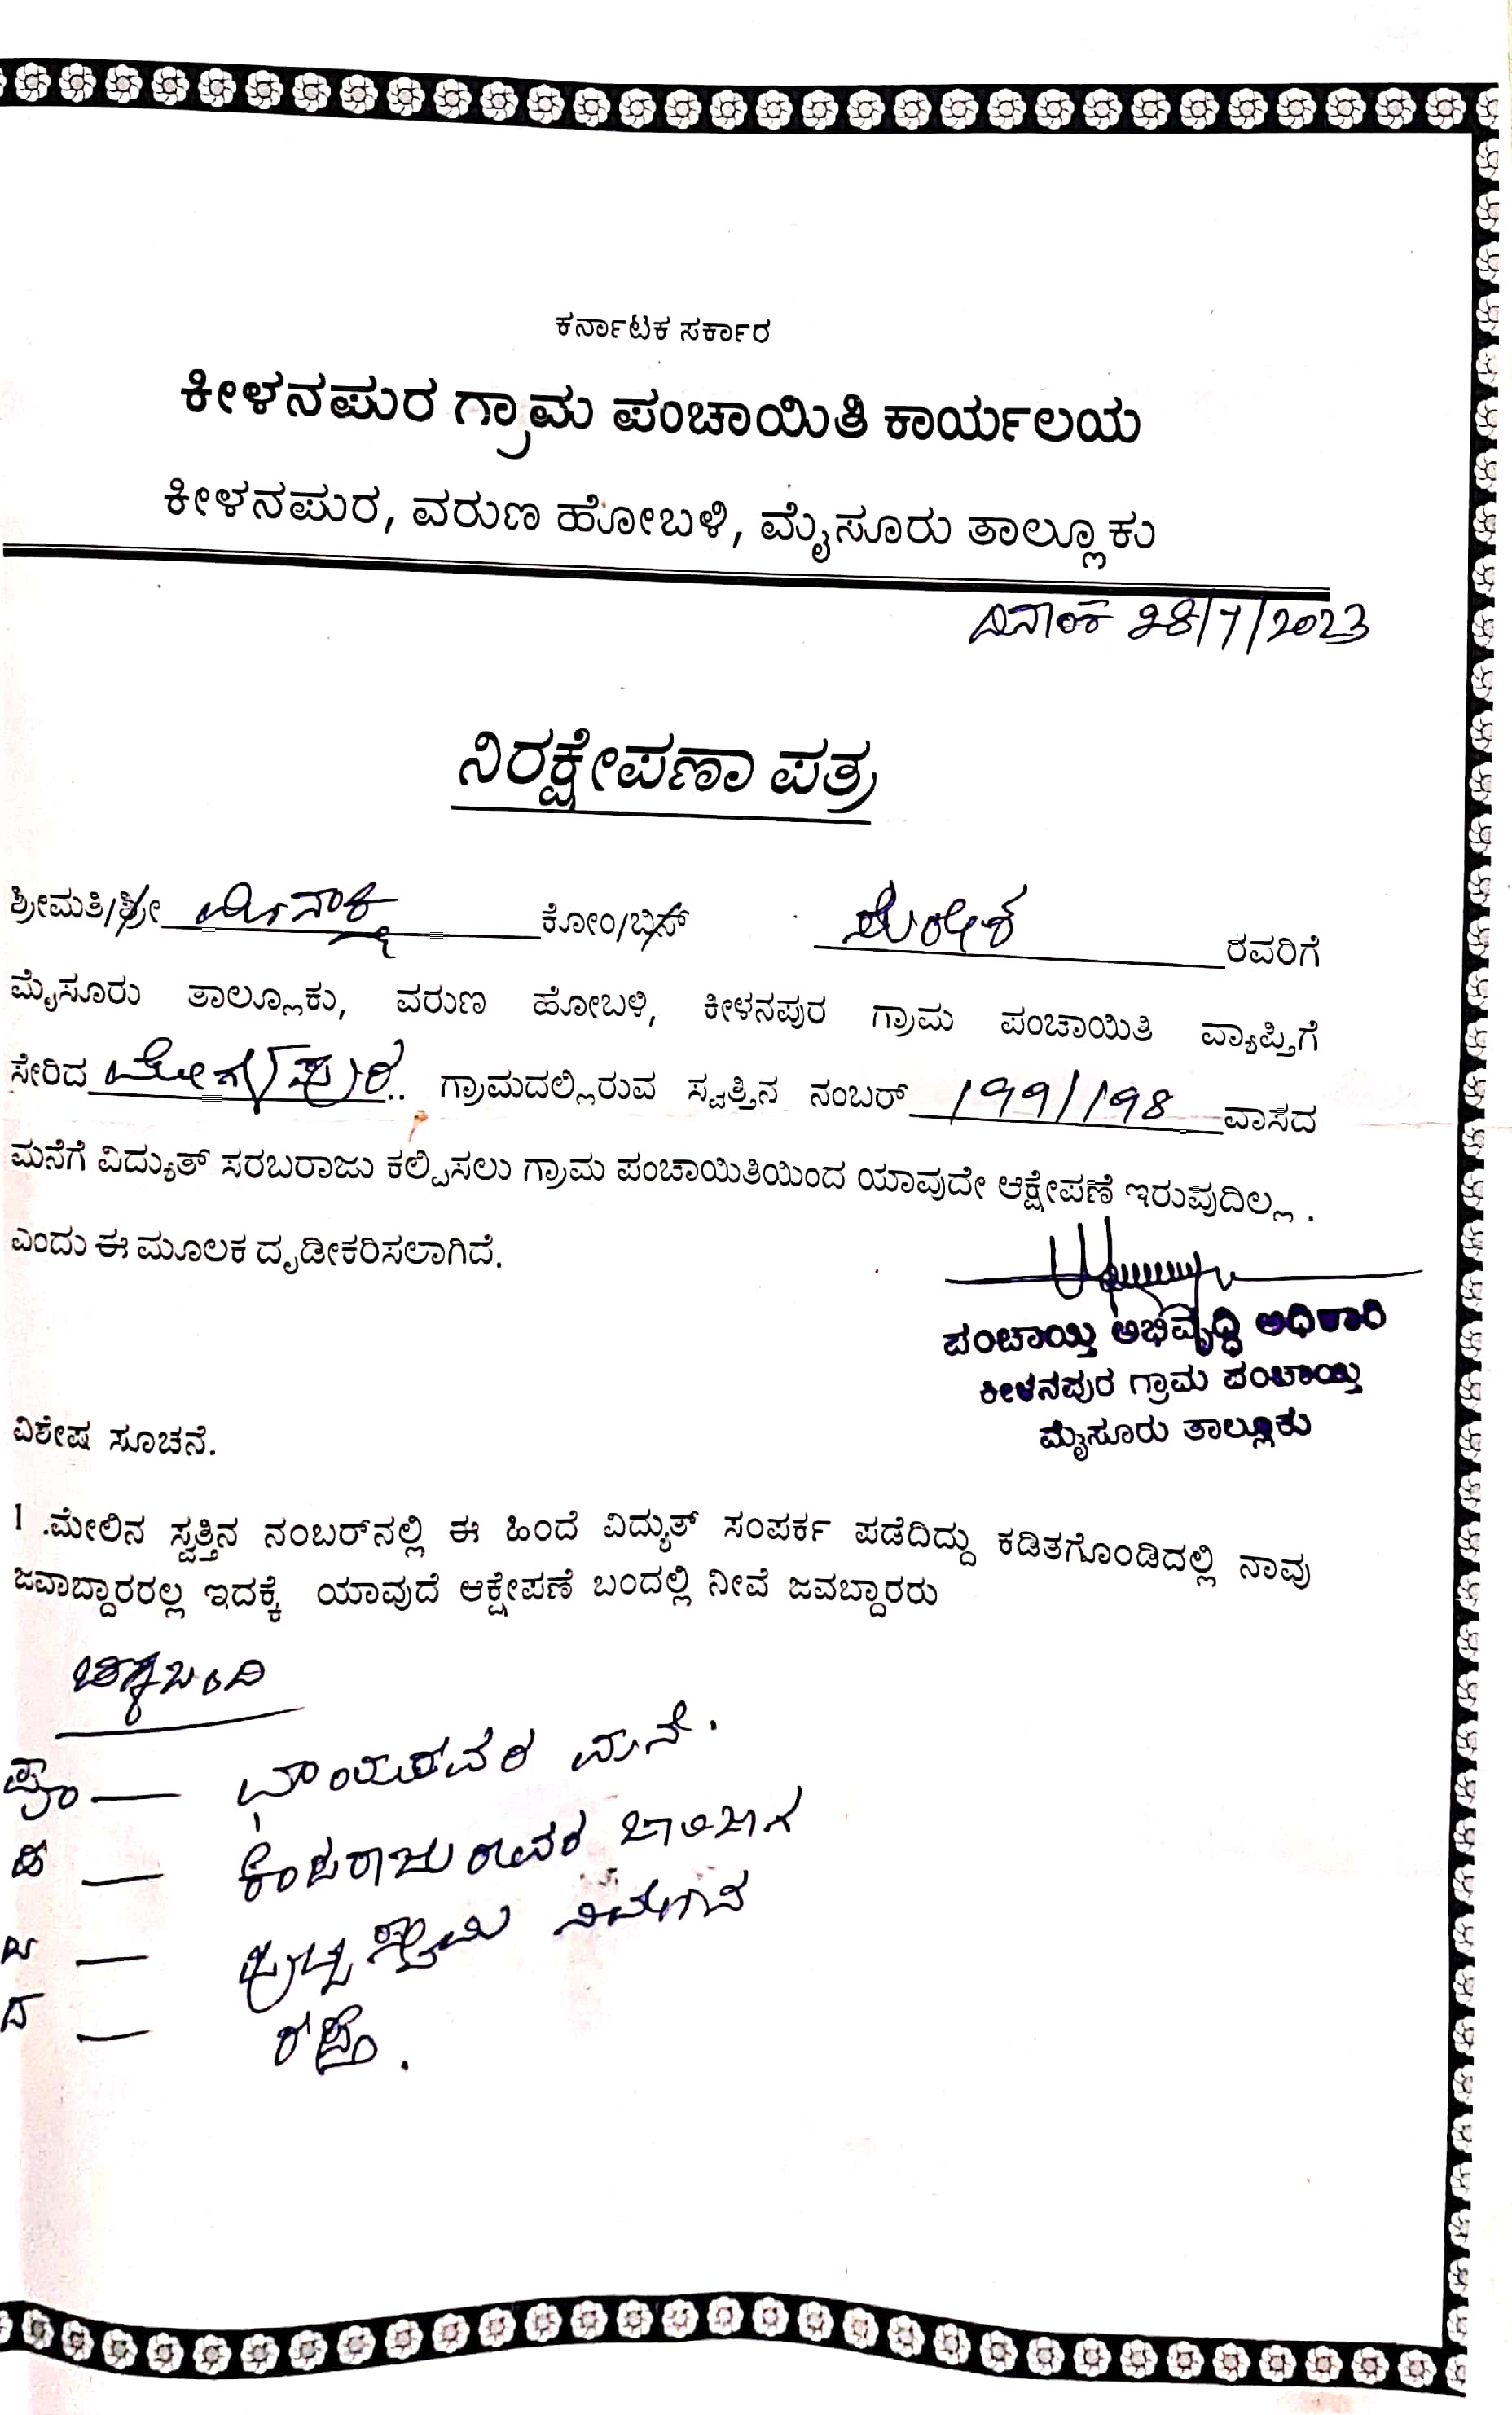 ಕರ್ನಾಟಕ ಸರ್ಕಾರ
ಕೀಳನಪುರ ಗ್ರಾಮ ಪಂಚಾಯಿತಿ ಕಾರ್ಯಲಯ
ಕೀಳನಪುರ, ವರುಣ ಹೋಬಳಿ, ಮೈಸೂರು ತಾಲ್ಲೂಕು
ದಿನಾಂಕ 28/7/2023
ನಿರಕ್ಷೇಪಣಾ ಪತ್ರ
ಶ್ರೀಮತಿ/ಶ್ರೀ ಮೀನಾಕ್ಷಿ ಕೋಂ/ಬಿನ್ ಸುರೇಶ ರವರಿಗೆ
ಮೈಸೂರು ತಾಲ್ಲೂಕು, ವರುಣ ಹೋಬಳಿ, ಕೀಳನಪುರ ಗ್ರಾಮ ಪಂಚಾಯಿತಿ ವ್ಯಾಪ್ತಿಗೆ
ಸೇರಿದ ಗ್ರಾಮದಲ್ಲಿರುವ ಸ್ವತ್ತಿನ ನಂಬರ್ 199/198 ವಾಸದ
ಮನೆಗೆ ವಿದ್ಯುತ್ ಸರಬರಾಜು ಕಲ್ಪಿಸಲು ಗ್ರಾಮ ಪಂಚಾಯಿತಿಯಿಂದ ಯಾವುದೇ ಆಕ್ಷೇಪಣೆ ಇರುವುದಿಲ್ಲ .
ಎಂದು ಈ ಮೂಲಕ ದೃಡೀಕರಿಸಲಾಗಿದೆ.
ಪಂಚಾಯ್ತಿ ಅಭಿವೃದ್ಧಿ ಅಧಿಕಾರಿ
ಕೀಳನಪುರ ಗ್ರಾಮ ಪಂಚಾಯ್ತಿ
ಮೈಸೂರು ತಾಲ್ಲೂಕು
ವಿಶೇಷ ಸೂಚನೆ.
1 .ಮೇಲಿನ ಸ್ವತ್ತಿನ ನಂಬರ್‌ನಲ್ಲಿ ಈ ಹಿಂದೆ ವಿದ್ಯುತ್ ಸಂಪರ್ಕ ಪಡೆದಿದ್ದು ಕಡಿತಗೊಂಡಿದಲ್ಲಿ ನಾವು
ಜವಾಬ್ದಾರರಲ್ಲ ಇದಕ್ಕೆ ಯಾವುದೆ ಆಕ್ಷೇಪಣೆ ಬಂದಲ್ಲಿ ನೀವೆ ಜವಬ್ದಾರರು
ಚಕ್ಕಬಂದಿ
ಪೂ — ಮನೆ.
ಪ — ಕೆಂಪರಾಜು ರವರ
ಉ — ಪುಟ್ಟಸ್ವಾಮಿ ನಿವೇಶನ
ದ — ರಸ್ತೆ.